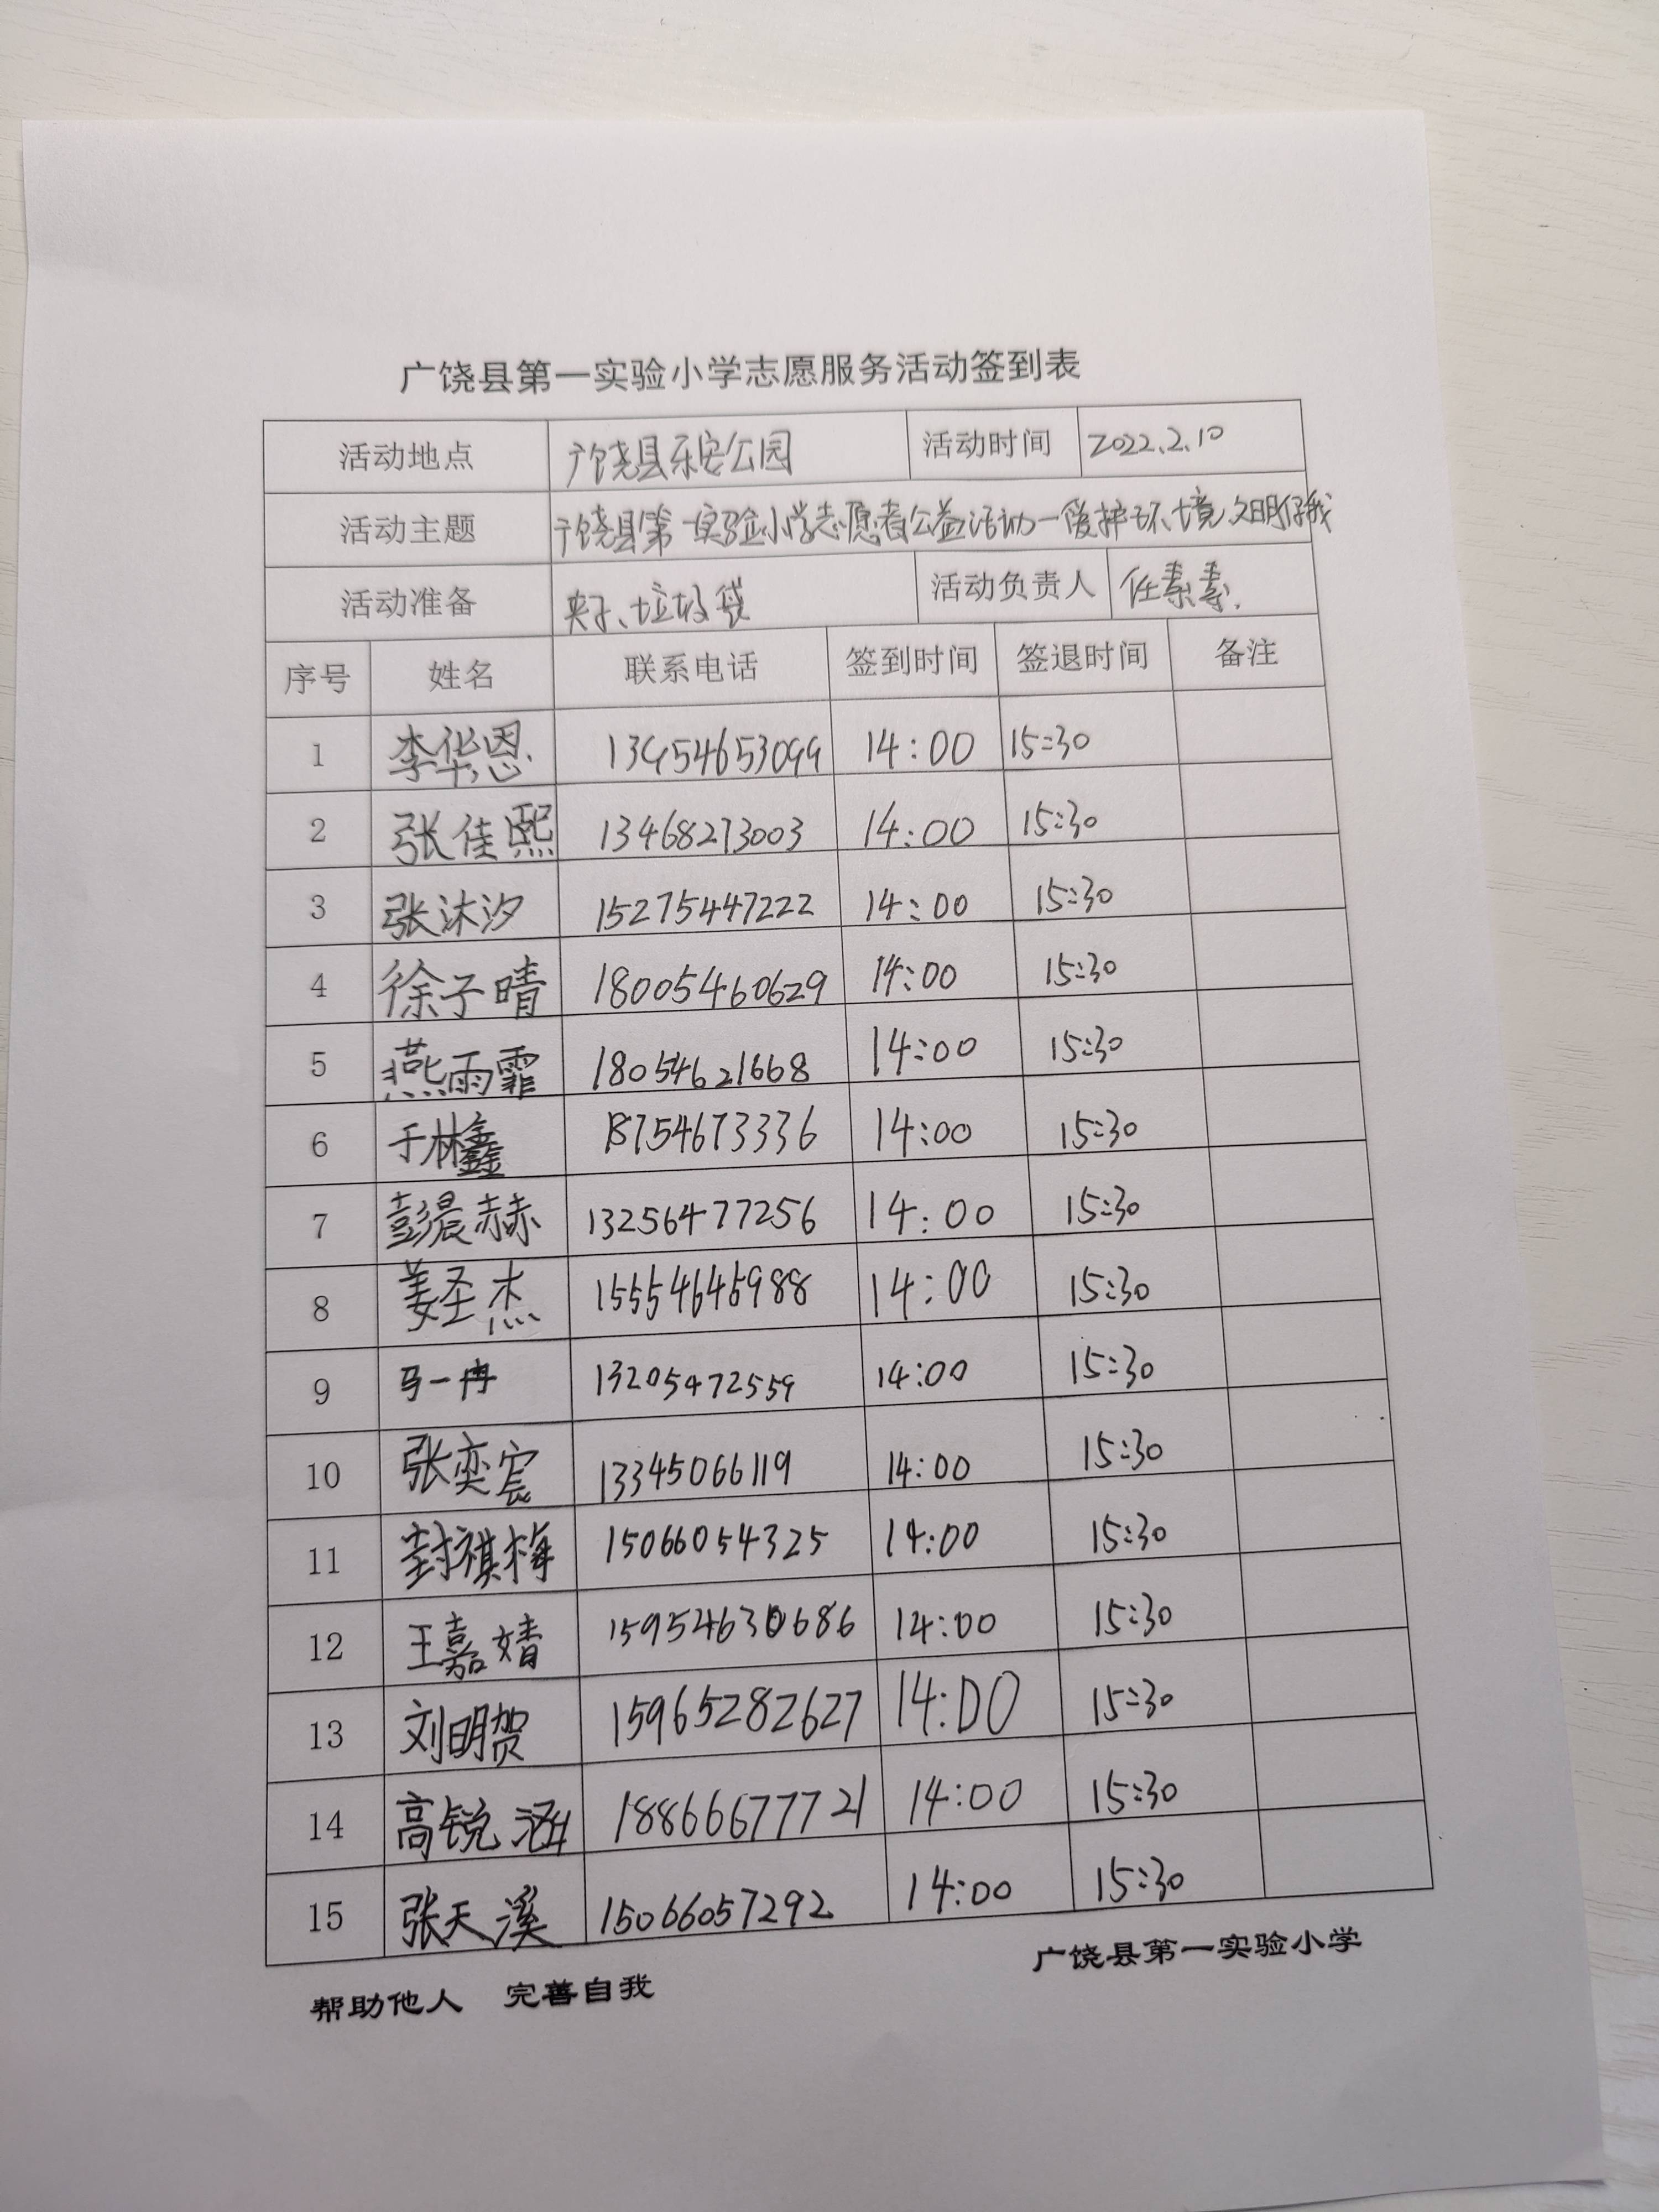 广饶县第一实验小学志愿服务活动签到表
活动地点 广饶县乐安公园 活动时间 2022.2.10
活动主题 广饶县第一实验小学志愿者公益活动—爱护环境,文明你我
活动准备 夹子、垃圾袋 活动负责人 任素素.
序号 姓名 联系电话 签到时间 签退时间 备注
1 李华恩 13954653099 14:00 15:30
2 张佳熙 13468273003 14:00 15:30
3 张沐汐 15275447222 14:00 15:30
4 徐子晴 18005460629 14:00 15:30
5 燕雨霏 18054621668 14:00 15:30
6 于林鑫 18754673336 14:00 15:30
7 彭晨赫 13256477256 14:00 15:30
8 姜圣杰 15554645988 14:00 15:30
9 马一冉 13205472559 14:00 15:30
10 张奕宸 13345066119 14:00 15:30
11 封祺梅 15066054325 14:00 15:30
12 王嘉婧 15954630686 14:00 15:30
13 刘明贺 15965282627 14:00 15:30
14 高锐涵 18866677721 14:00 15:30
15 张天溪 15066057292 14:00 15:30
帮助他人 完善自我 广饶县第一实验小学